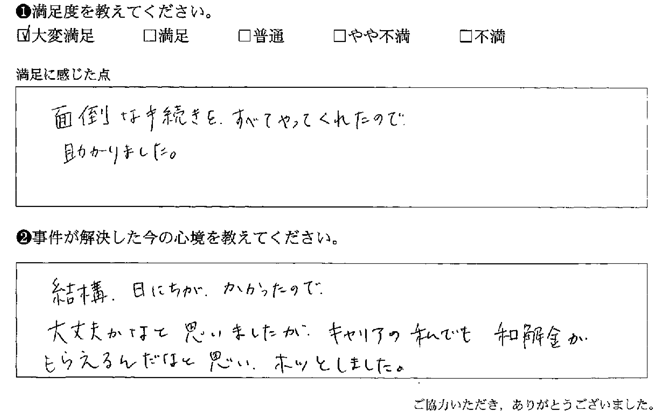 ❶満足度を教えてください。
☑大変満足 □満足 □普通 □やや不満 □不満
満足に感じた点
面倒な手続きを、すべてやってくれたので
助かりました。
❷事件が解決した今の心境を教えてください。
結構、日にちが、かかったので、
大丈夫かなと思いましたが、キャリアの私でも 和解金が
もらえるんだなと思い、ホッとしました。
ご協力いただき、ありがとうございました。